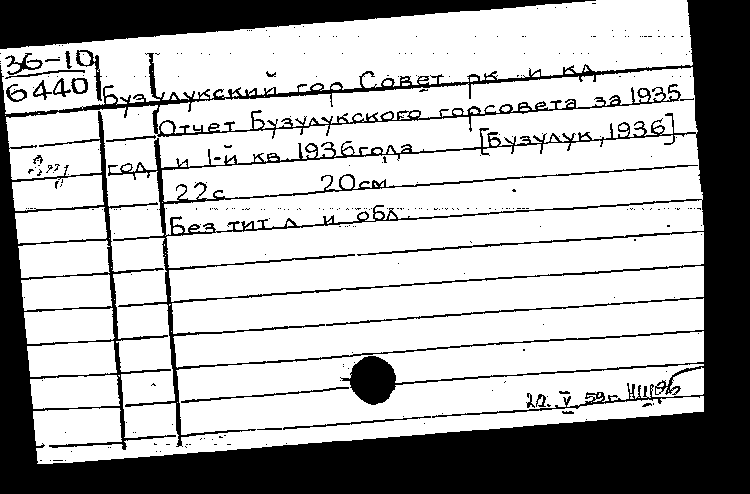 36-10
6440
Бузулукский гор Совет рк и кд
Отчет Бузулукского горсовета за 1935
год и 1-й кв. 1936 года. [Бузулук, 1936]
22с 20см.
Без тит. л. и обл.
20. V. 59г.